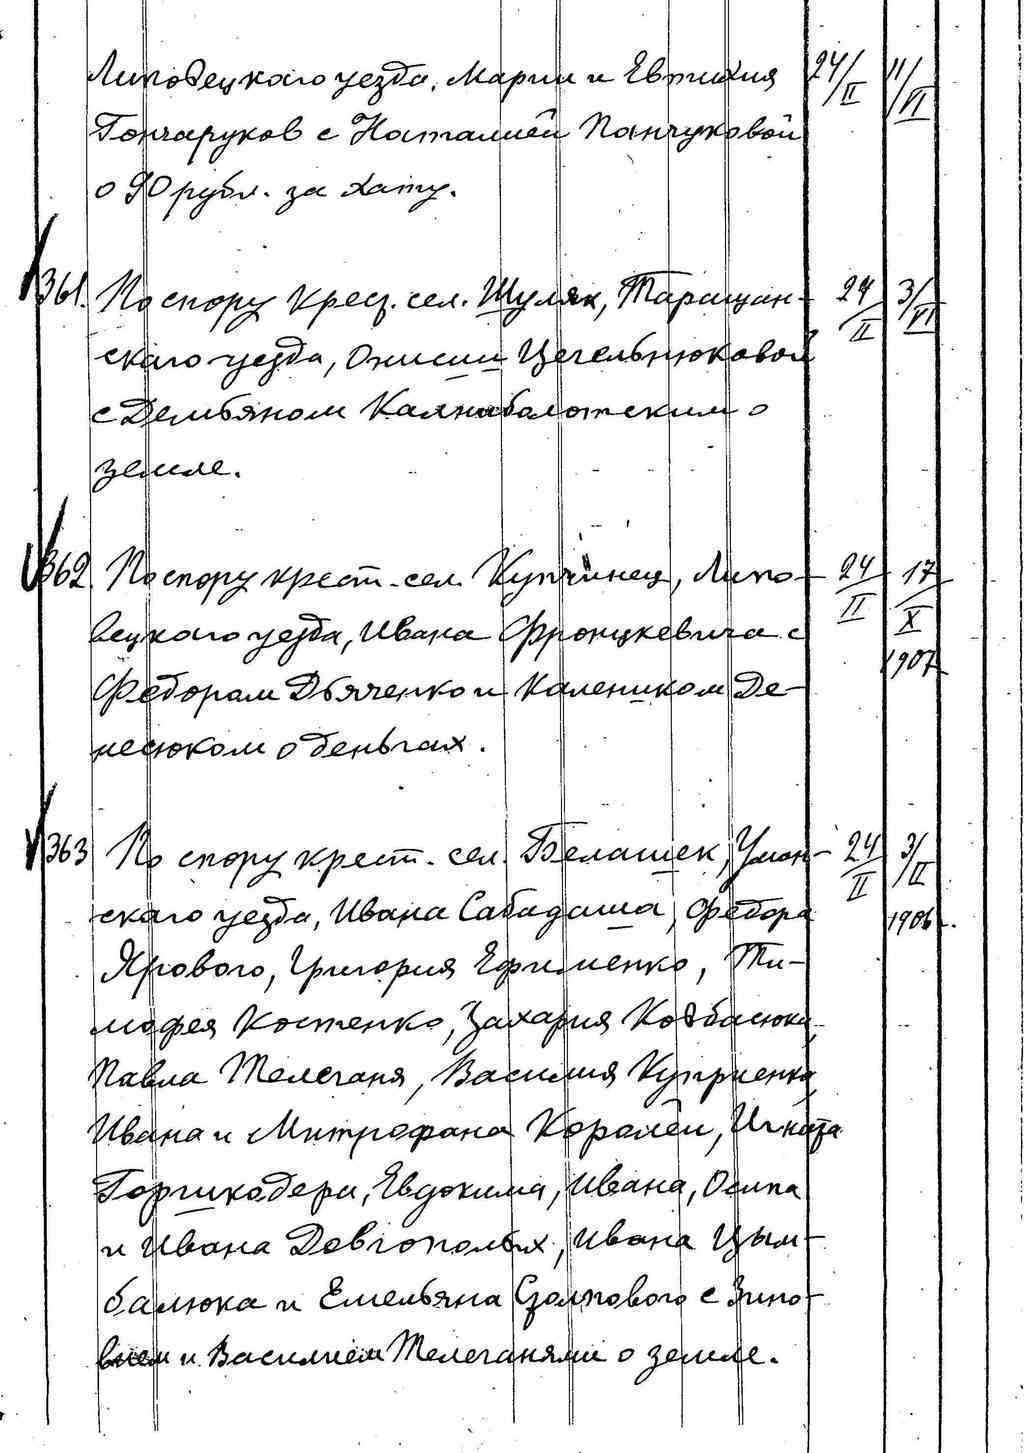 Липовецкаго уезда, Марии и Евтихия 24/II 11/VI
Гончаруков с Наталией Панчуковой
о 90 рубл. за хату.
361. По спору крест. сел. Шуляк, Таращан- 24/II 3/VI
скаго уезда, Онисии Цегельнюковой
с Демьяном Калниболотским о
земле.
362. По спору крест. сел. Купчинец, Липо- 24/II 17/X
вецкаго уезда, Ивана Фронцкевича с
1907
Федорам Дьяченко и Калеником Де-
несюком о деньгах.
363 По спору крест. сел. Белашек, Уман- 24/II 3/II
скаго уезда, Ивана Сабадаша, Федора 1906 г.
Ярового, Григория Ефименко, Ти-
мофея Костенко, Захария Ковбасюка,
Павла Телеганя, Василия Куприенко,
Ивана и Митрофана Королей, Игната
Горшкодери, Евдокима, Ивана, Осипа
и Ивана Довгополых, Ивана Цым-
балюка и Емельяна Столпового с Зино-
вием и Василием Телеганями о земле.